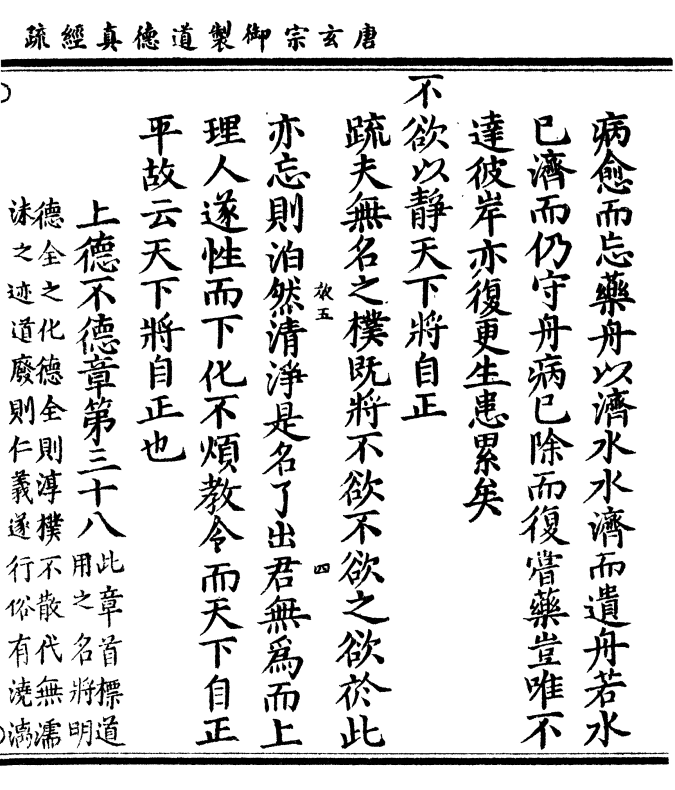 唐玄宗御製道德真經疏
病愈而忘藥舟以濟水水濟而遺舟若水
已濟而仍守舟病已除而復嘗藥豈唯不
達彼岸亦復更生患累矣
不欲以靜天下將自正
疏夫無名之樸既將不欲不欲之欲於此
亦忘則泊然清淨是名了出君無為而上
效五
四
理人遂性而下化不煩教令而天下自正
平故云天下將自正也
上德不德章第三十八此章首標道
用之名將明
德全之化德全則淳樸不散代無濡
沫之迹道廢則仁義遂行俗有澆漓